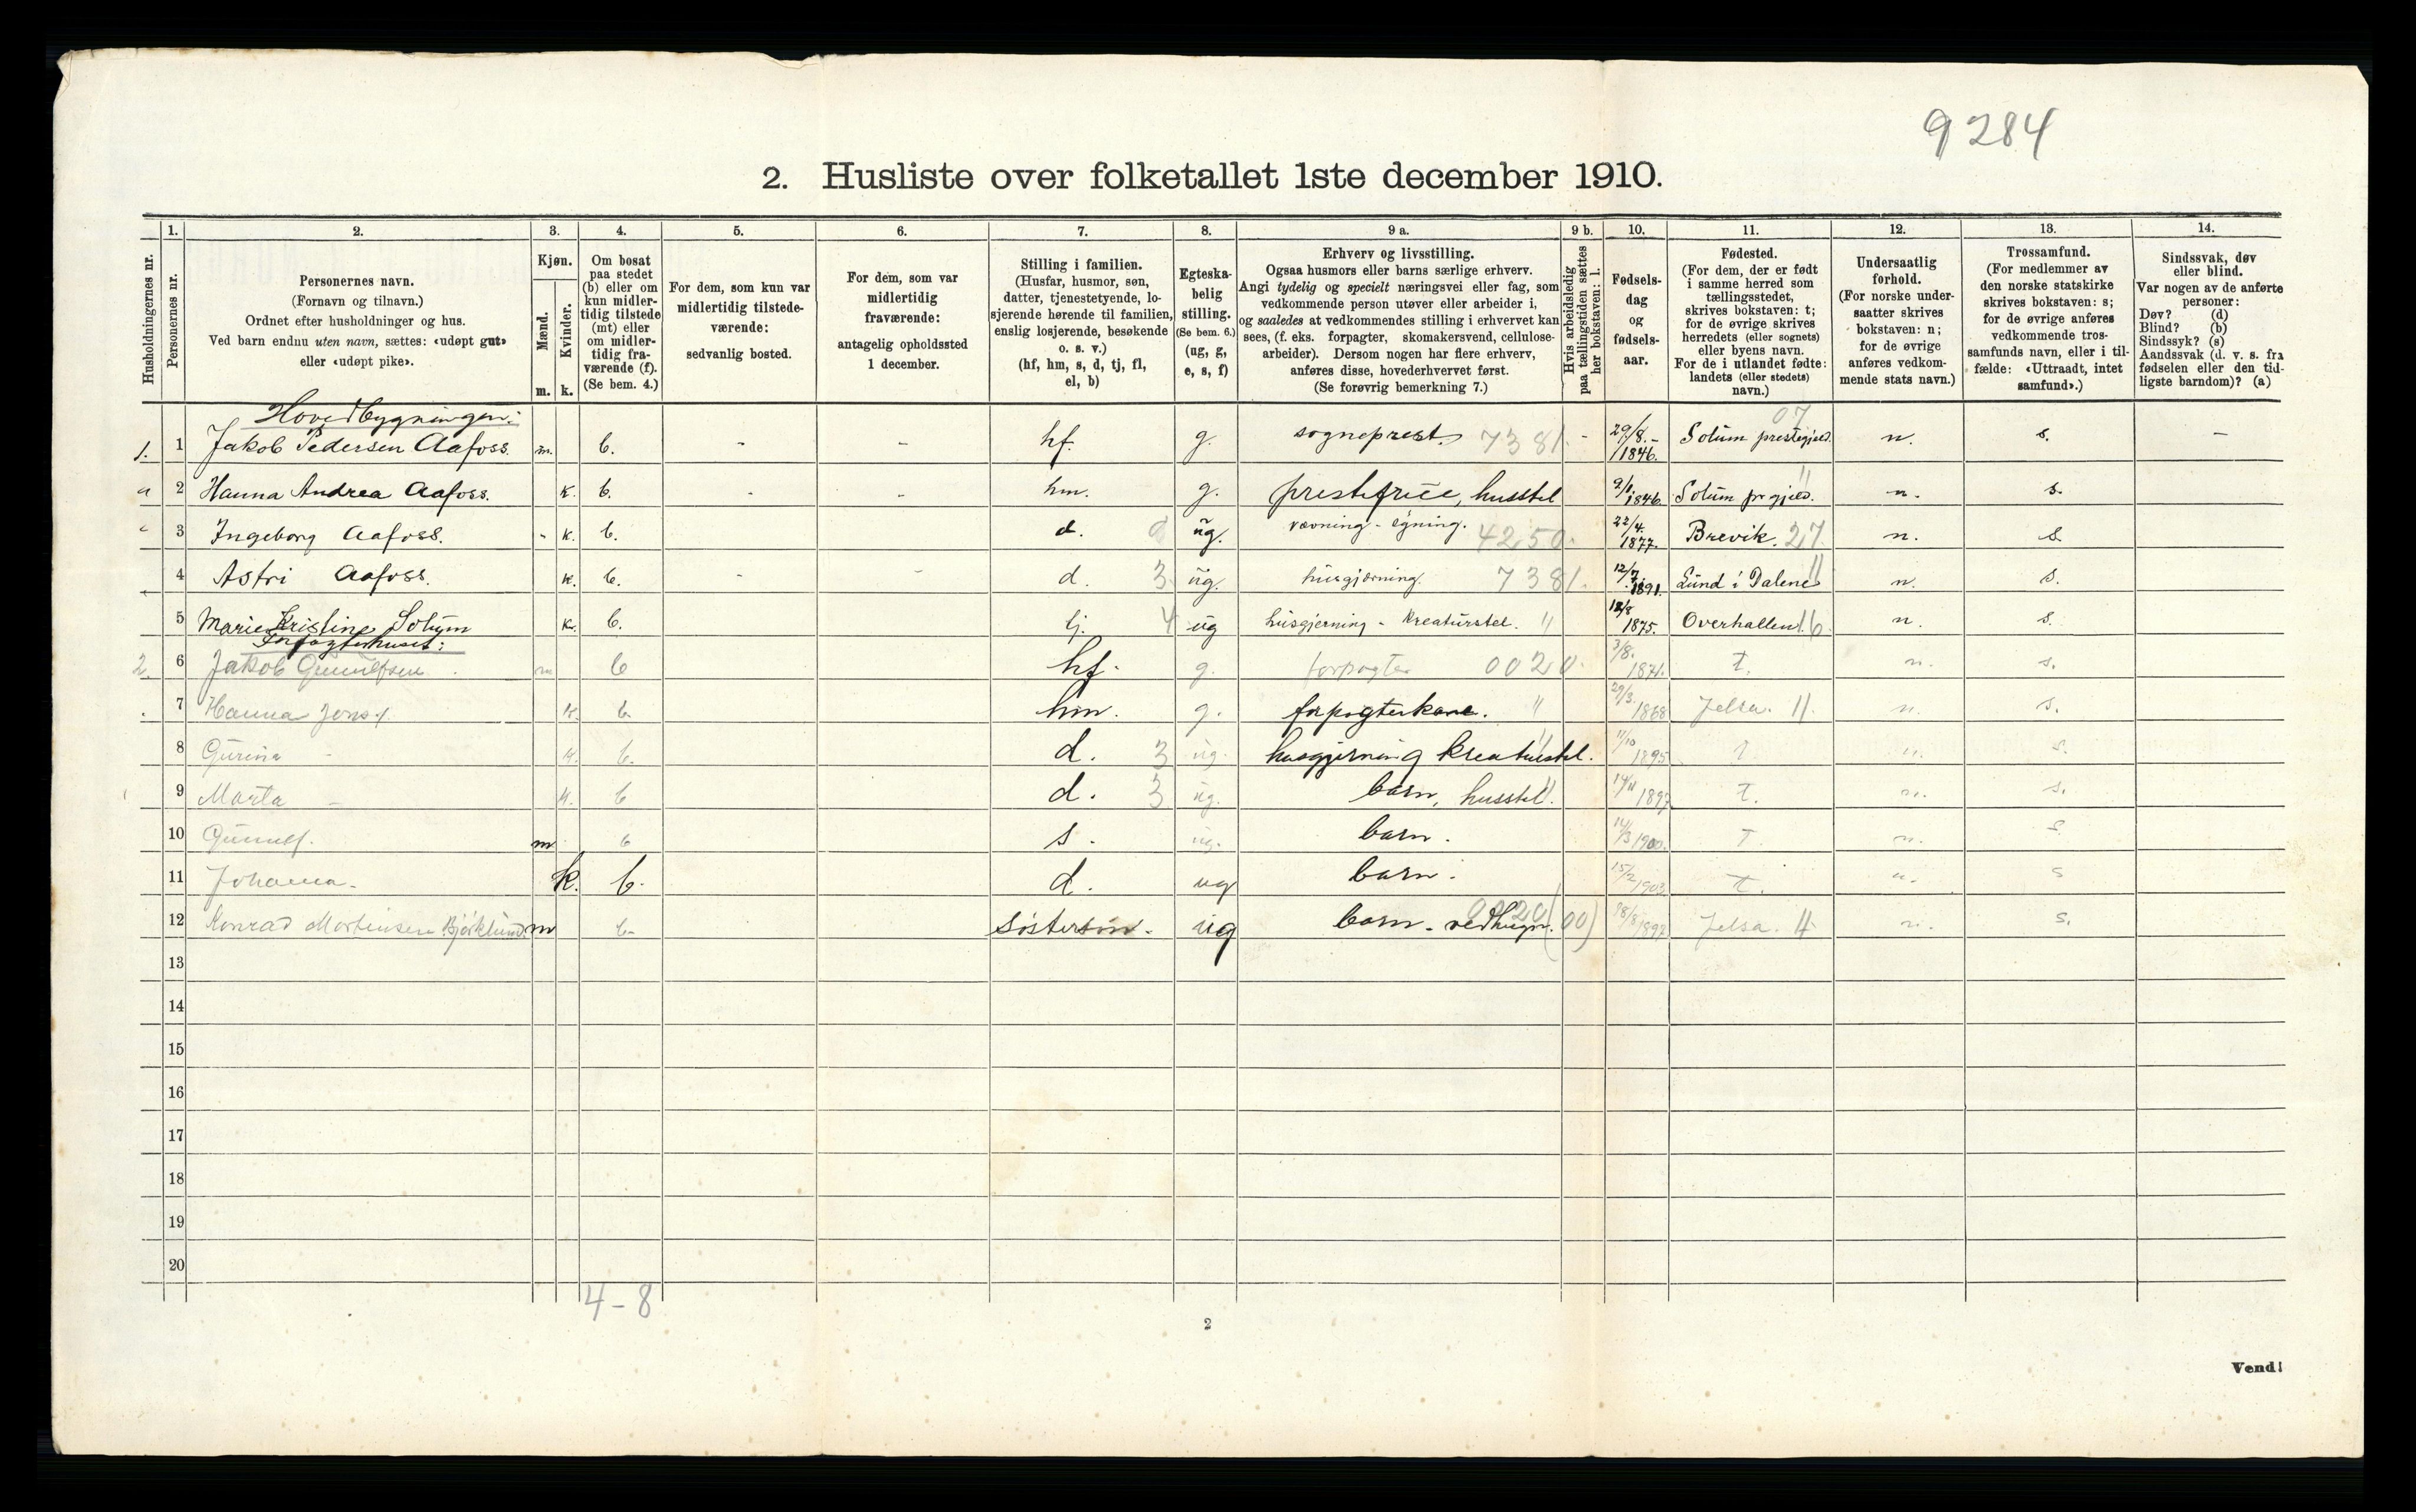 9284
2. Husliste over folketallet 1ste december 1910.
Husholdningernes nr.
1. Personernes nr.
2. Personernes navn. (Fornavn og tilnavn.) Ordnet efter husholdninger og hus. Ved barn endnu uten navn, sættes: «udøpt gut» eller «udøpt pike».
3. Kjøn. Mænd. Kvinder. m. k.
4. Om bosat paa stedet (b) eller om kun midlertidig tilstede (mt) eller om midlertidig fraværende (f). (Se bem. 4.)
5. For dem, som kun var midlertidig tilstedeværende: sedvanlig bosted.
6. For dem, som var midlertidig fraværende: antagelig opholdssted 1 december.
7. Stilling i familien. (Husfar, husmor, søn, datter, tjenestetyende, losjerende hørende til familien, enslig losjerende, besøkende o. s. v.) (hf, hm, s, d, tj, fl, el, b)
8. Egteskabelig stilling. (Se bem. 6.) (ug, g, e, s, f)
9 a. Erhverv og livsstilling. Ogsaa husmors eller barns særlige erhverv. Angi tydelig og specielt næringsvei eller fag, som vedkommende person utøver eller arbeider i, og saaledes at vedkommendes stilling i erhvervet kan sees, (f. eks. forpagter, skomakersvend, cellulosearbeider). Dersom nogen har flere erhverv, anføres disse, hovederhvervet først. (Se forøvrig bemerkning 7.)
9 b. Hvis arbeidsledig paa tællingstiden sættes her bokstaven: l.
10. Fødselsdag og fødselsaar.
11. Fødested. (For dem, der er født i samme herred som tællingsstedet, skrives bokstaven: t; for de øvrige skrives herredets (eller sognets) eller byens navn. For de i utlandet fødte: landets (eller stedets) navn.)
12. Undersaatlig forhold. (For norske undersaatter skrives bokstaven: n; for de øvrige anføres vedkommende stats navn.)
13. Trossamfund. (For medlemmer av den norske statskirke skrives bokstaven: s; for de øvrige anføres vedkommende trossamfunds navn, eller i tilfælde: «Uttraadt, intet samfund».)
14. Sindssvak, døv eller blind. Var nogen av de anførte personer: Døv? (d) Blind? (b) Sindssyk? (s) Aandssvak (d. v. s. fra fødselen eller den tidligste barndom)? (a)
Hovedbygningen:
1. 1 Jakob Pedersen Aafoss. m. b. - - hf. g. sogneprest. 7381. - 29/8.- 1846. Solum prestegjeld. 07 n. s. -
2 Hanna Andrea Aafoss. k. b. - - hm. g. prestefrue, husstel 9/1 1846. Solum prgjeld. " n. s.
3 Ingeborg Aafoss. - k. b. d. 0 ug. vævning - syning. 4250. 22/4. 1877. Brevik. 27 n. s.
4 Astri Aafoss. k. b. - - d. 3 ug. husgjerning. 7381. 12/7 1891. Lund i Dalene 11 n. s.
5 Marie Kristine Solum k. b. tj. 4 ug husgjerning - Kreaturstel. " 12/8 1875. Overhallen. 16. n. s.
Forpagterhuset:
2. 6 Jakob Gunulfsen m b hf. g. forpagter 0020. 3/8. 1871. t. n. s.
7 Hanna Jons d. k. b. hm. g. forpagterkone. " 29/3. 1868 Jelsa. 11. n. s.
8 Gurina - k. b. d. 3 ug. husgjerning kreaturstel. " 11/10 1895 t n. s.
9 Marta - k. b d. 3 ug. barn, husstel. " 14/11 1897 t. n. s.
10 Gunulf. m b s. ug. barn. 14/3 1900. T. n. s.
11 Johanna. k. b. d. ug barn. 15/2 1903. t. n. s
12 Konrad Mortensen Bjørklund. m b søstersøn. ug barn. vedhugn. 0020 (00) 18/8 1897 Jelsa. 11 n. s.
13
14
15
16
17
18
19
20
4-8
2
Vend!